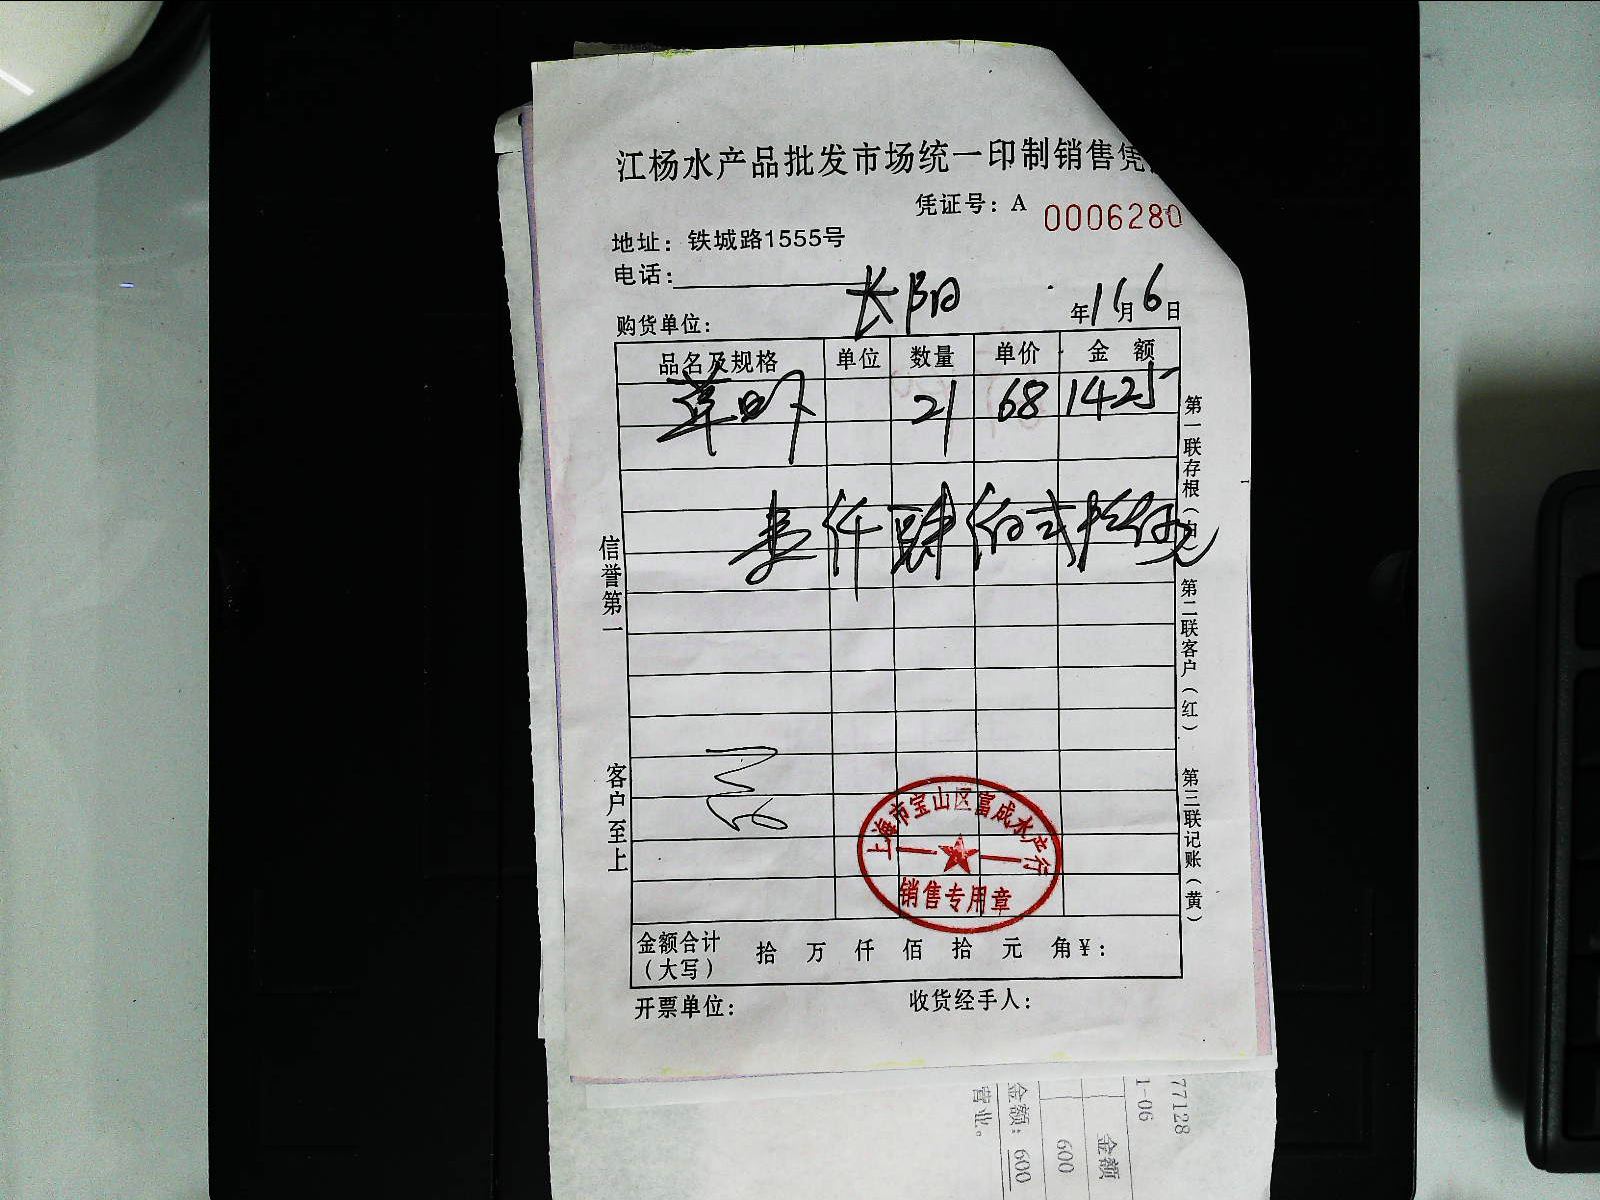 江杨水产品批发市场统一印制销售凭
凭证号：A 0006280
地址：铁城路1555号
电话：
购货单位：
长阳
年11月6日
品名及规格 单位 数量 单价 金额
草虾 21 68 1425
壹仟肆佰式拾伍元
信誉第一
客户至上
第一联存根（白）
第二联客户（红）
第三联记账（黄）
上海市宝山区富成水产行
销售专用章
金额合计（大写） 拾 万 仟 佰 拾 元 角￥：
开票单位： 收货经手人：
77128
1-06
金额
600
金额：600
营业。